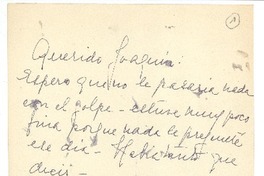 1
Querido Joaquín:
Espero que no le pasaría nada
con el golpe - estuve muy poco
fina porque nada le pregunté
ese día - Habíamos que
decir -